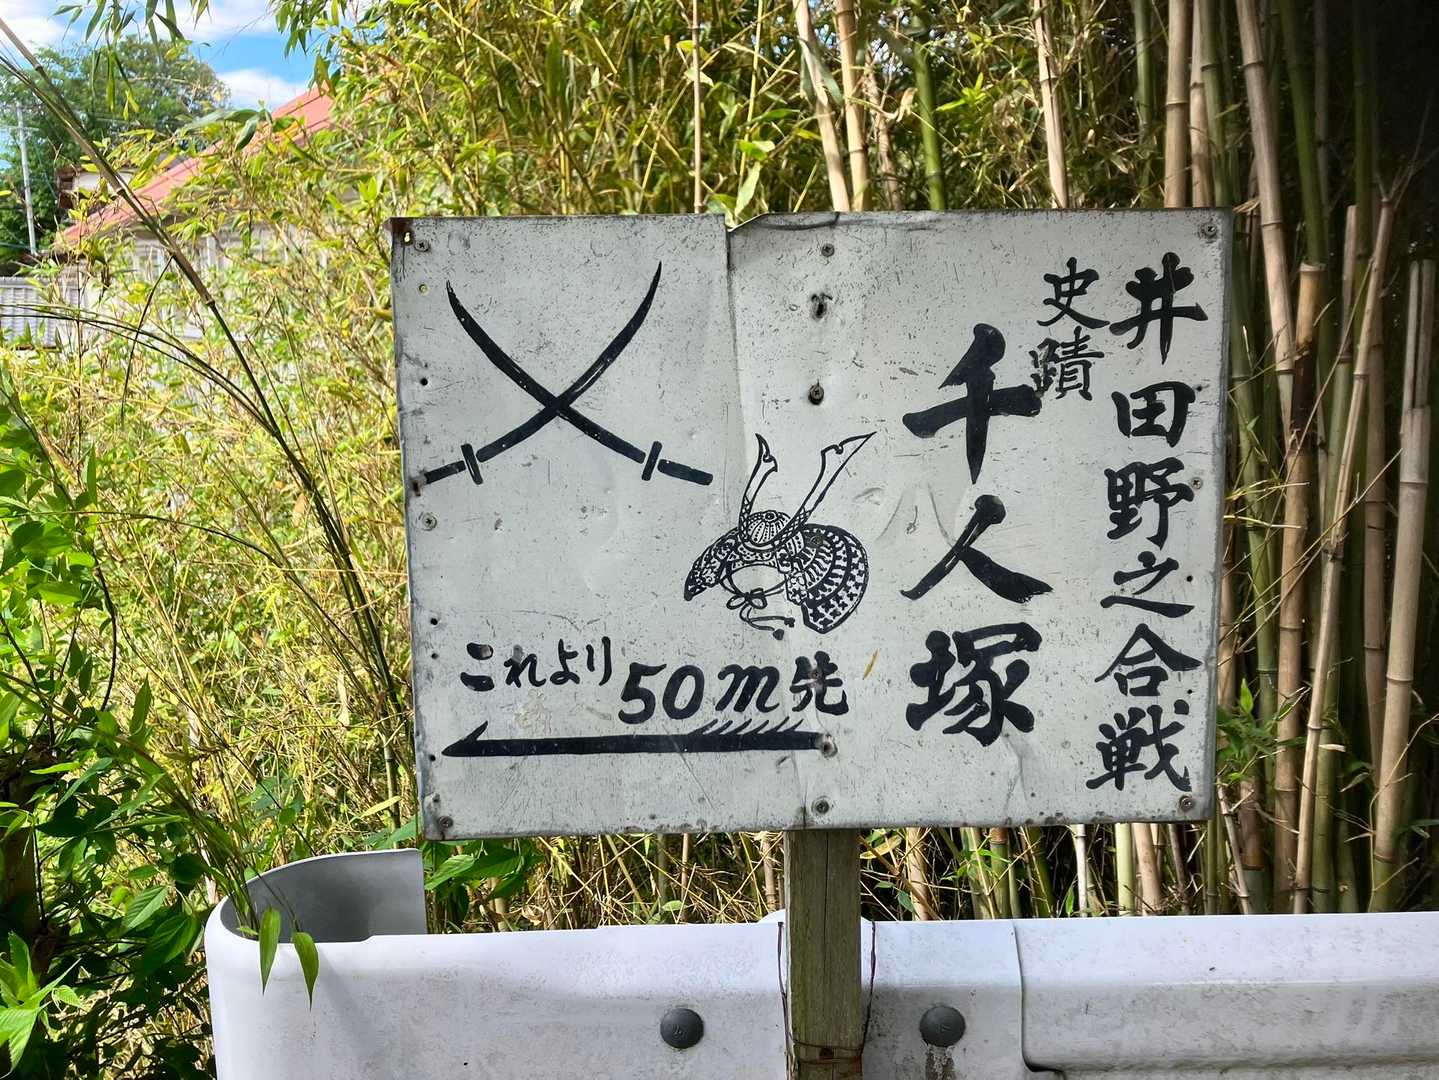 井田野之合戦
史蹟
千人塚
これより50m先